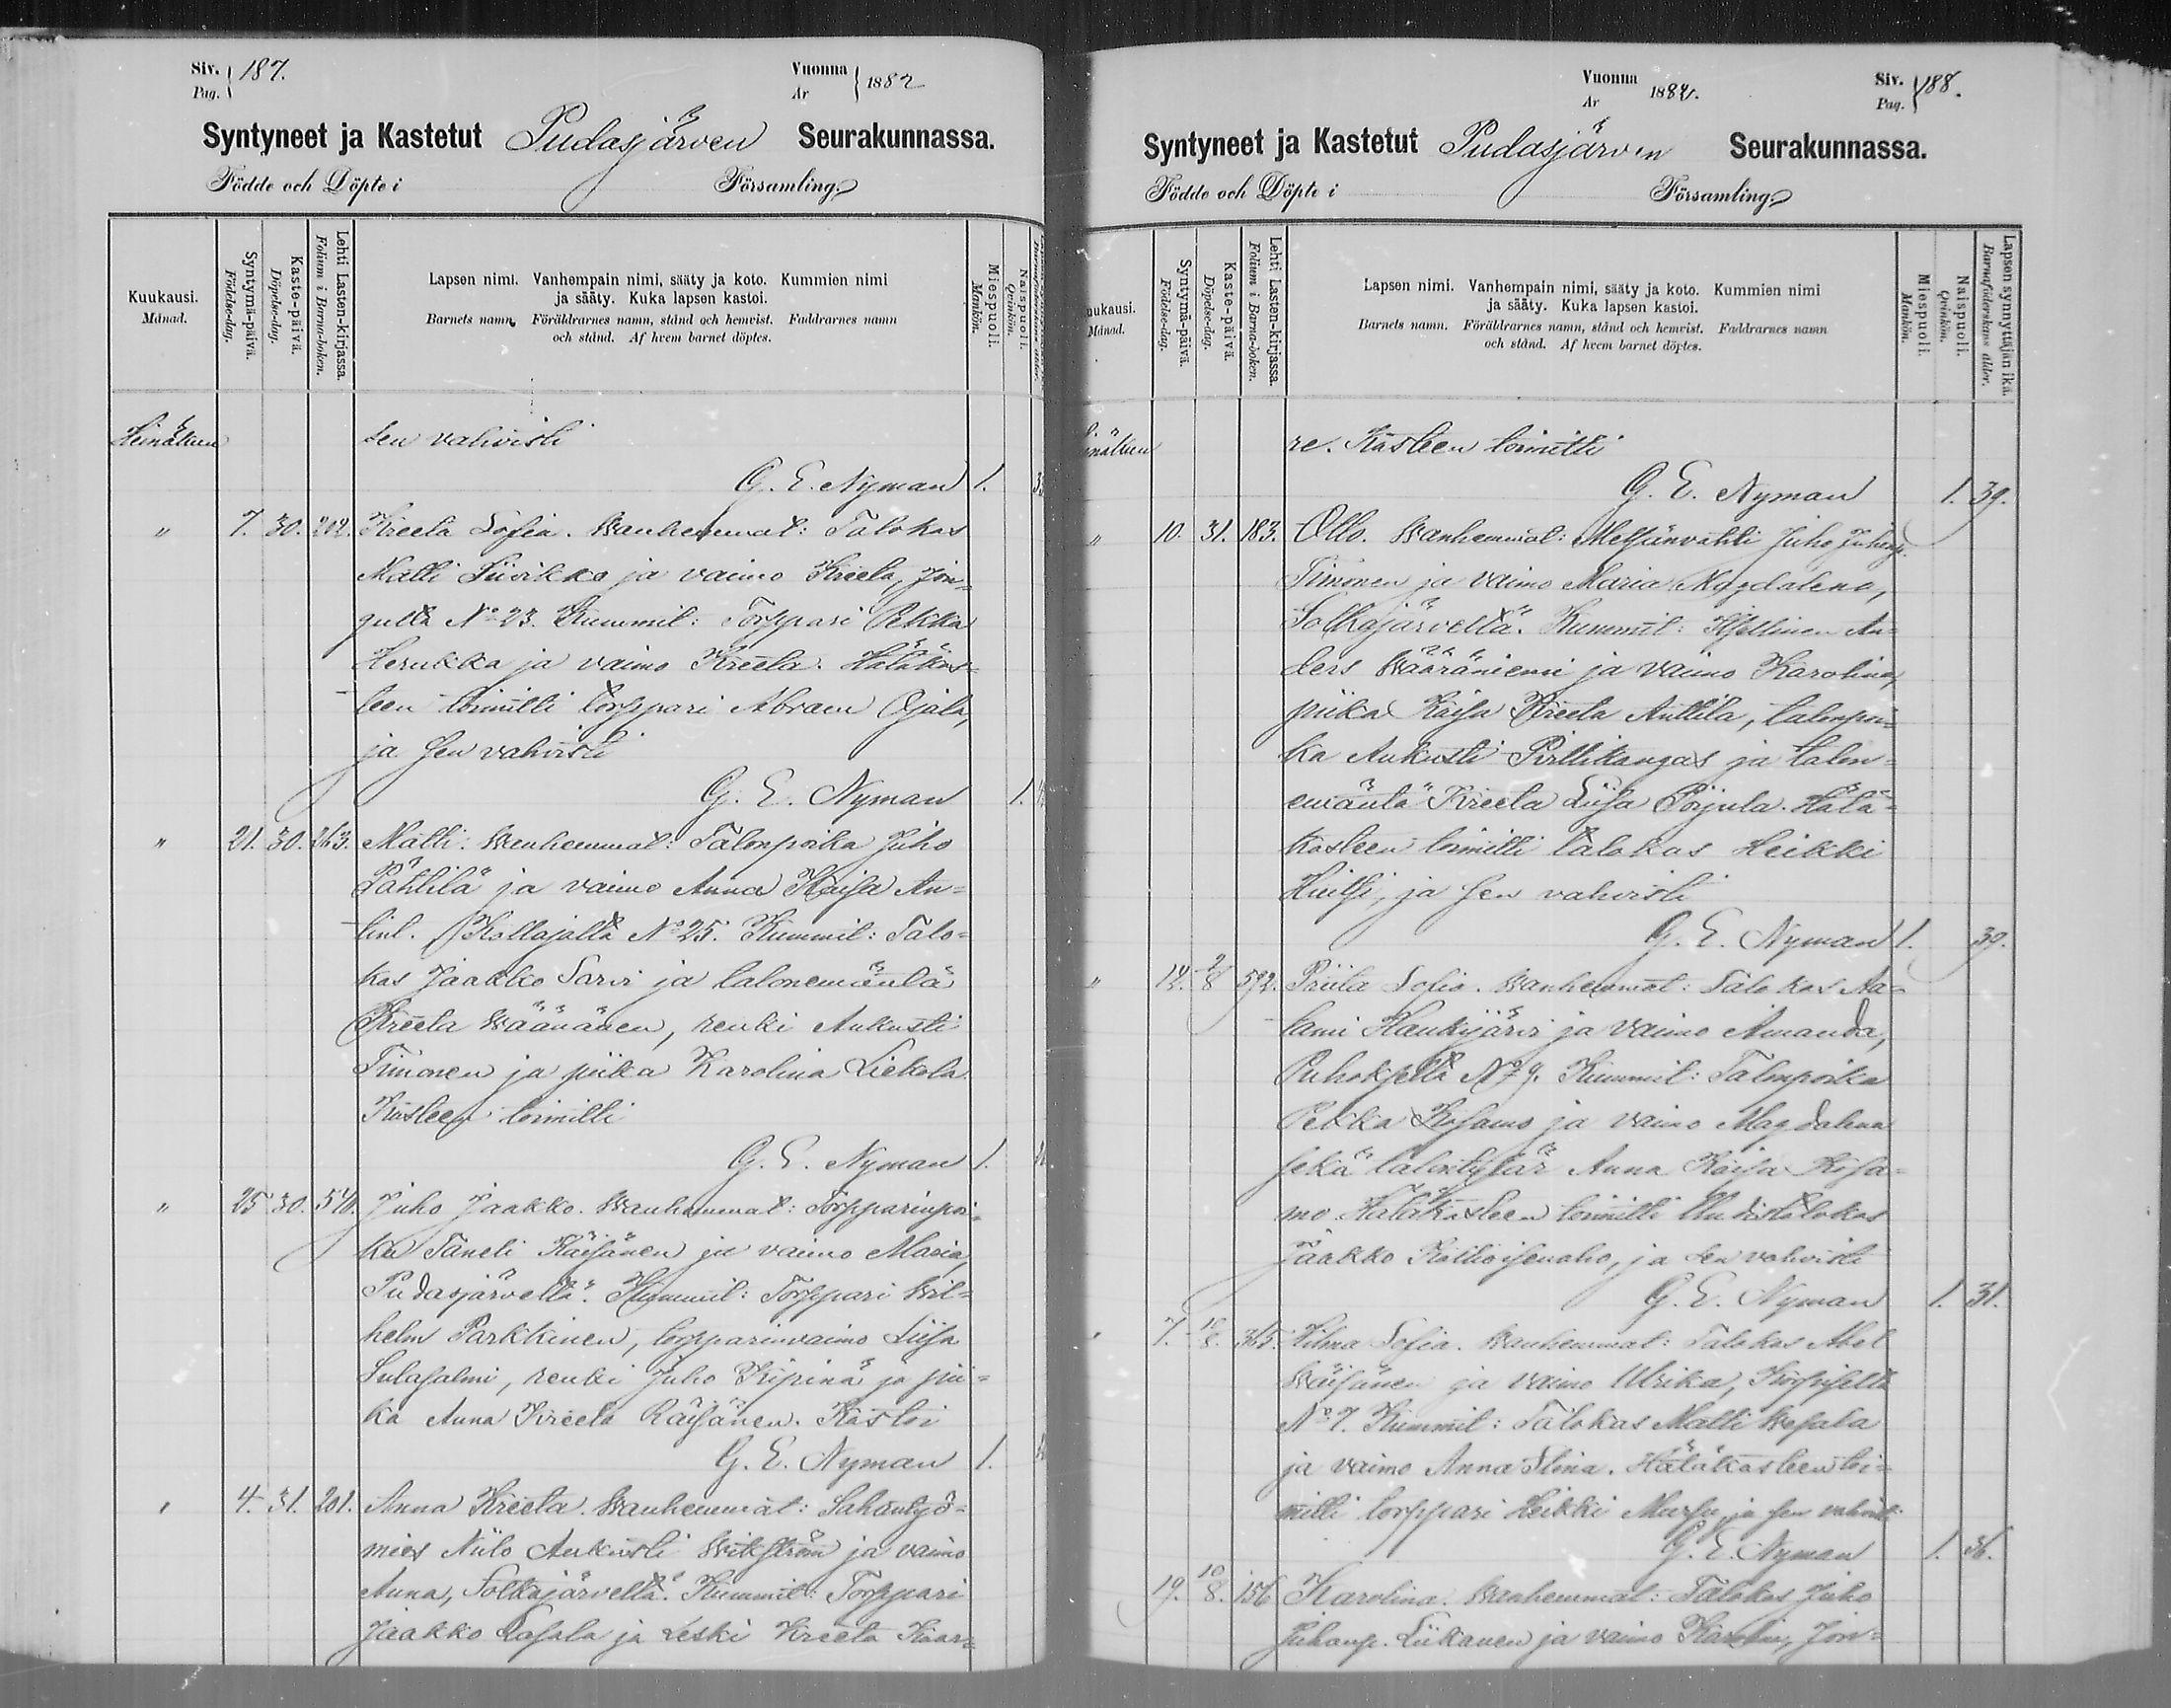 Siv. Pag. 187.
Vuonna År 1882
Syntyneet ja Kastetut Pudasjärven Seurakunnassa.
Födde och Döpte i Församling
Kuukausi. Månad.
Syntymä-päivä. Födelse-dag.
Kaste-päivä. Döpelse-dag.
Lehti Lasten-kirjassa. Folium i Barna-boken.
Lapsen nimi. Vanhempain nimi, sääty ja koto. Kummien nimi
ja sääty. Kuka lapsen kastoi.
Barnets namn. Föräldrarnes namn, stånd och hemvist. Faddrarnes namn
och stånd. Af hvem barnet döptes.
Miespuoli. Mankön.
Naispuoli. Qvinkön.
Heinäkuu sen vahvisti
G. E. Nyman 1.
" 7. 30. 202. Kreeta Sofia. Wanhemmat: Talokas
Matti Siivikko ja vaimo Kreeta, Jon-
gulta No 23. Kummit: Torppari Pekka
Herukka ja vaimo Kreeta. Hätäkas-
teen toimitti torppari Abram Ojala,
ja sen vahvisti
G. E. Nyman 1.
" 21. 30. 263. Matti. Wanhemmat: Talonpoika Juho
Pähtilä ja vaimo Anna Kaisa An-
tint. Kollajalta No 25. Kummit: Talo-
kas Jaakko Sarvi ja talonemäntä
Kreeta Väänänen, renki Aukusti
Timonen ja piika Karolina Liekola.
Kasteen toimitti
G. E. Nyman 1.
" 25 30. 540. Juho Jaakko. Wanhemmat: Torpparinpoi-
ka Taneli Räisänen ja vaimo Maria,
Pudasjärveltä. Kummit: Torppari Wil-
helm Parkkinen, torpparinvaimo Liisa
Sulasalmi, renki Juho Kipinä ja pii-
ka Anna Kreeta Räisänen. Kastoi
G. E. Nyman 1.
" 4. 31. 201. Anna Kreeta. Wanhemmat: Sahantyö-
mies Niilo Aukusti Wikström ja vaimo
Anna, Sotkajärveltä. Kummit: Torppari
Jaakko Lasala ja Leski Kreeta Kaar-
Vuonna År 1882.
Siv. Pag. 188.
Syntyneet ja Kastetut Pudasjärven Seurakunnassa.
Födde och Döpte i Församling
Kuukausi. Månad.
Syntymä-päivä. Födelse-dag.
Kaste-päivä. Döpelse-dag.
Lehti Lasten-kirjassa. Folium i Barna-boken.
Lapsen nimi. Vanhempain nimi, sääty ja koto. Kummien nimi
ja sääty. Kuka lapsen kastoi.
Barnets namn. Föräldrarnes namn, stånd och hemvist. Faddrarnes namn
och stånd. Af hvem barnet döptes.
Miespuoli. Mankön.
Naispuoli. Qvinkön.
Lapsen synnyttäjän ikä. Barnaföderskans ålder.
re. Kasteen toimitti
G. E. Nyman 1. 39.
" 10. 31. 183. Otto. Wanhemmat: Metsänvahti Juho Juhonp.
Timonen ja vaimo Maria Magdalena,
Sotkajärveltä. Kummit: Itsellinen An-
ders Wääräniemi ja vaimo Karolina,
piika Kaisa Kreeta Anttila, talonpoi-
ka Aukusti Pirttikangas ja talon-
emäntä Kreeta Liisa Porjula. Hätä-
kasteen toimitti talokas Heikki
Huitsi, ja sen vahvisti
G. E. Nyman 1. 39.
" 14. 2/8 592. Priita Sofia. Wanhemmat: Talokas Aa-
tami Haukijärvi ja vaimo Amanda,
Puhokselta No 9. Kummit: Talonpoika
Pekka Kosamo ja vaimo Magdalena
sekä talontytär Anna Kaisa Kosa-
mo. Hätäkasteen toimitti Uudistalokas
Jaakko Kottioisenaho, ja sen vahvisti
G. E. Nyman 1. 31.
" 7. 10/8. 365. Hilma Sofia. Wanhemmat: Talokas Abel
Väisänen ja vaimo Ulrika, Korpiselta
No 7. Kummit: Talokas Matti Wesala
ja vaimo Anna Stina. Hätäkasteen toi-
mitti torppari Heikki Mursu, ja sen vahvisti
G. E. Nyman 1. 36.
19. 10/8. 156 Karolina. Wanhemmat: Talokas Juho
Juhanp. Liikanen ja vaimo Karolin, Jon-